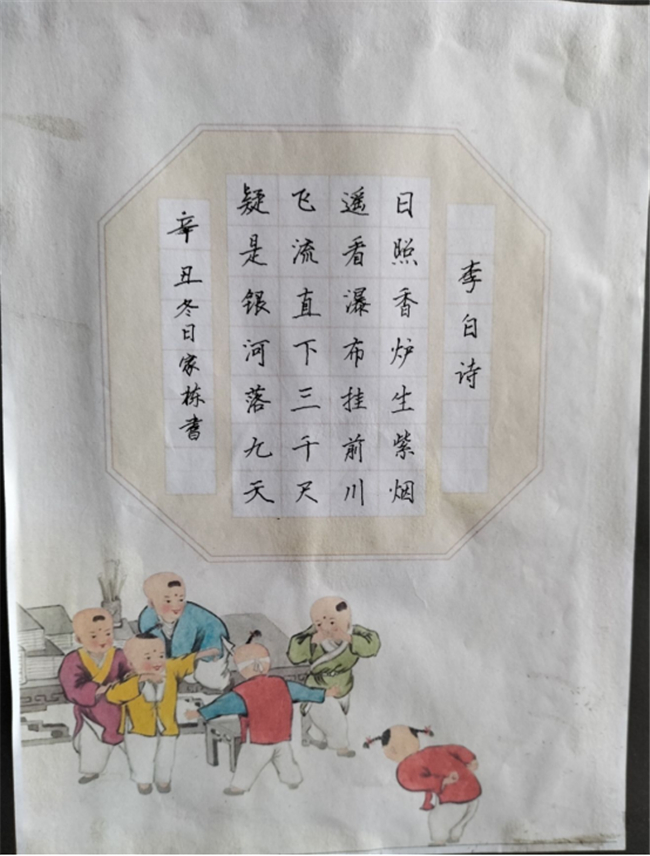 李白诗
日照香炉生紫烟
遥看瀑布挂前川
飞流直下三千尺
疑是银河落九天
辛丑冬日家栋书